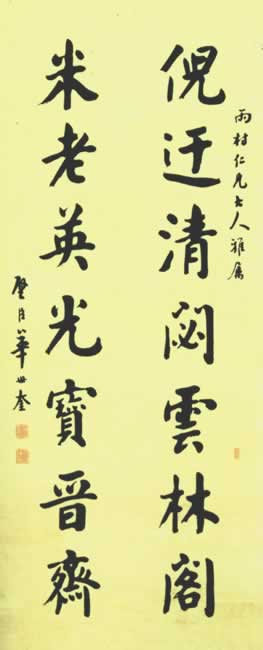 雨村仁兄大人雅屬
倪迂清閟雲林閣
米老英光寶晋齋
璧臣華世奎